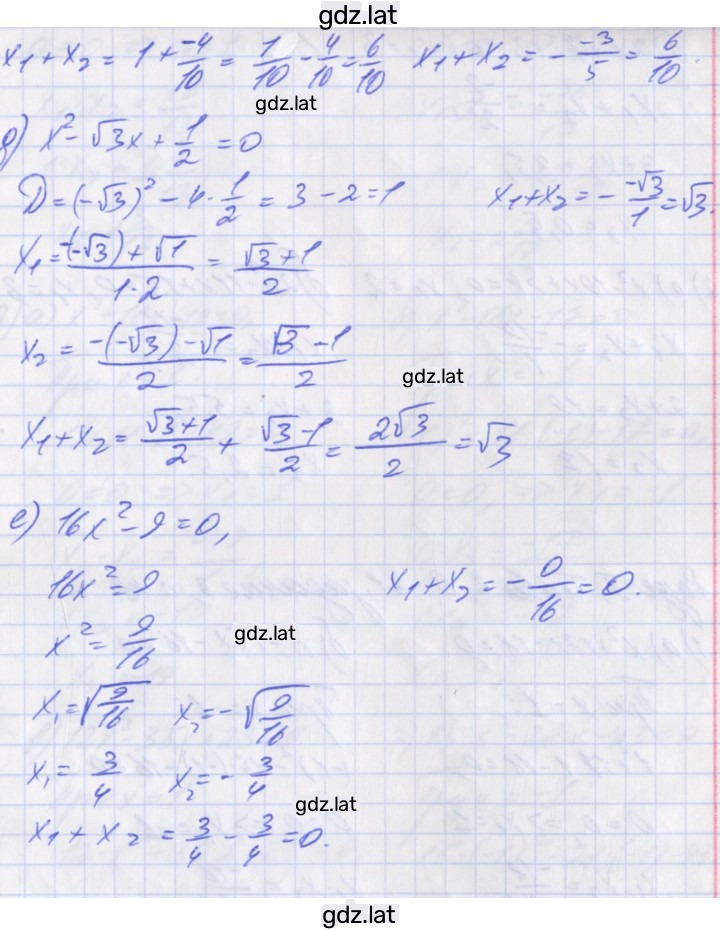 gdz.lat
x₁ + x₂ = 1 + -4/10 = 1/10 - 4/10 = 6/10 x₁ + x₂ = - -3/5 = 6/10.
gdz.lat
д) x² - √3x + 1/2 = 0
D = (-√3)² - 4 · 1/2 = 3 - 2 = 1 x₁ + x₂ = - -√3/1 = √3.
x₁ = -(-√3) + √1 / 1·2 = √3 + 1 / 2
x₂ = -(-√3) - √1 / 2 = √3 - 1 / 2
gdz.lat
x₁ + x₂ = √3 + 1 / 2 + √3 - 1 / 2 = 2√3 / 2 = √3
е) 16x² - 9 = 0,
16x² = 9 x₁ + x₂ = - 0/16 = 0.
x² = 9/16
gdz.lat
x₁ = √9/16 x₂ = -√9/16
x₁ = 3/4 x₂ = - 3/4
gdz.lat
x₁ + x₂ = 3/4 - 3/4 = 0.
gdz.lat